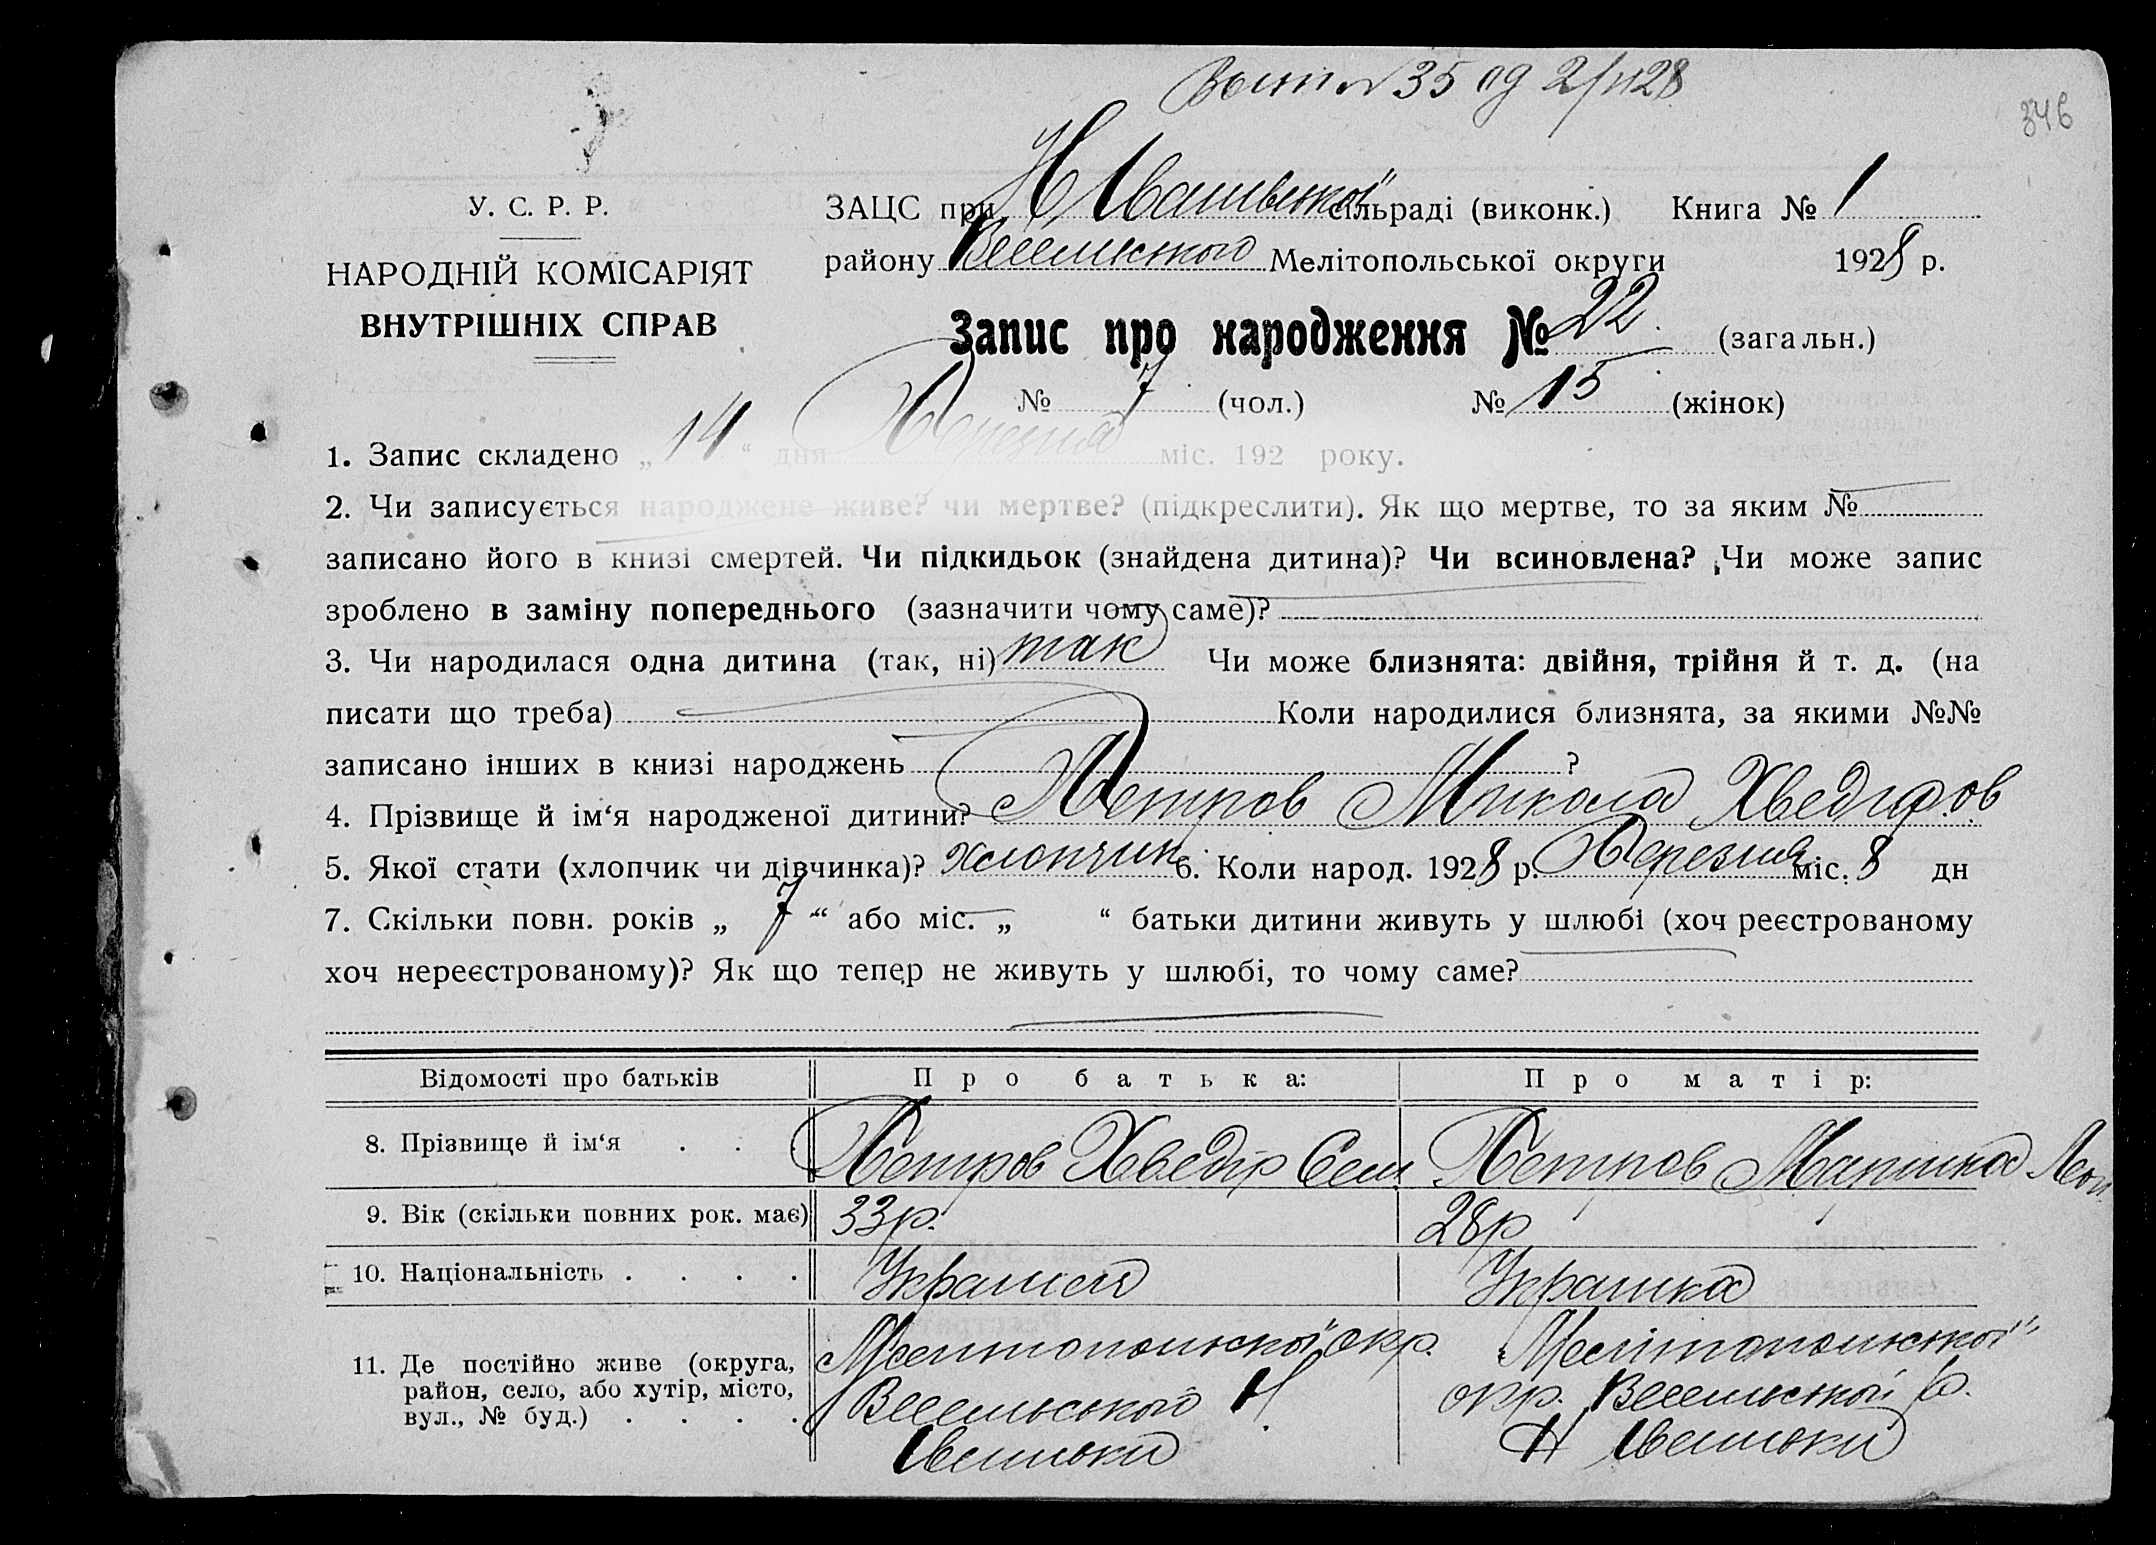 35 од 2/
346
У. С. Р. Р.
НАРОДНІЙ КОМІСАРІЯТ
ВНУТРІШНІХ СПРАВ
ЗАЦС при Н сільраді (виконк.) Книга № 1
району Мелітопольської округи 1928 р.
Запис про народження № 22 (загальн.)
№ 7 (чол.) № 15 (жінок)
1. Запис складено „ 14 “ дня Березня міс. 192 року.
2. Чи записується народжене живе? чи мертве? (підкреслити). Як що мертве, то за яким №
записано його в книзі смертей. Чи підкидьок (знайдена дитина)? Чи всиновлена? Чи може запис
зроблено в заміну попереднього (зазначити чому саме)?
3. Чи народилася одна дитина (так, ні) так Чи може близнята: двійня, трійня й т. д. (на
писати що треба) Коли народилися близнята, за якими №№
записано інших в книзі народжень ?
4. Прізвище й ім‘я народженої дитини? Петров Микола Хведіров
5. Якої стати (хлопчик чи дівчинка)? хлопчик 6. Коли народ. 1928 р. Березня міс. 8 дн
7. Скільки повн. років „ 7 “ або міс. „ “ батьки дитини живуть у шлюбі (хоч реєстрованому
хоч нереєстрованому)? Як що тепер не живуть у шлюбі, то чому саме?
Відомості про батьків Про батька: Про матір:
8. Прізвище й ім‘я . . . Петров Хведір Сем Петров Маринка
9. Вік (скільки повних рок. має) 33р. 28р
10. Національність . . . . Українка
11. Де постійно живе (округа, Мелітопольської окр. Мелітопольської
район, село, або хутір, місто, Веселського Н окр. Р.
вул., № буд.) . . . . Н